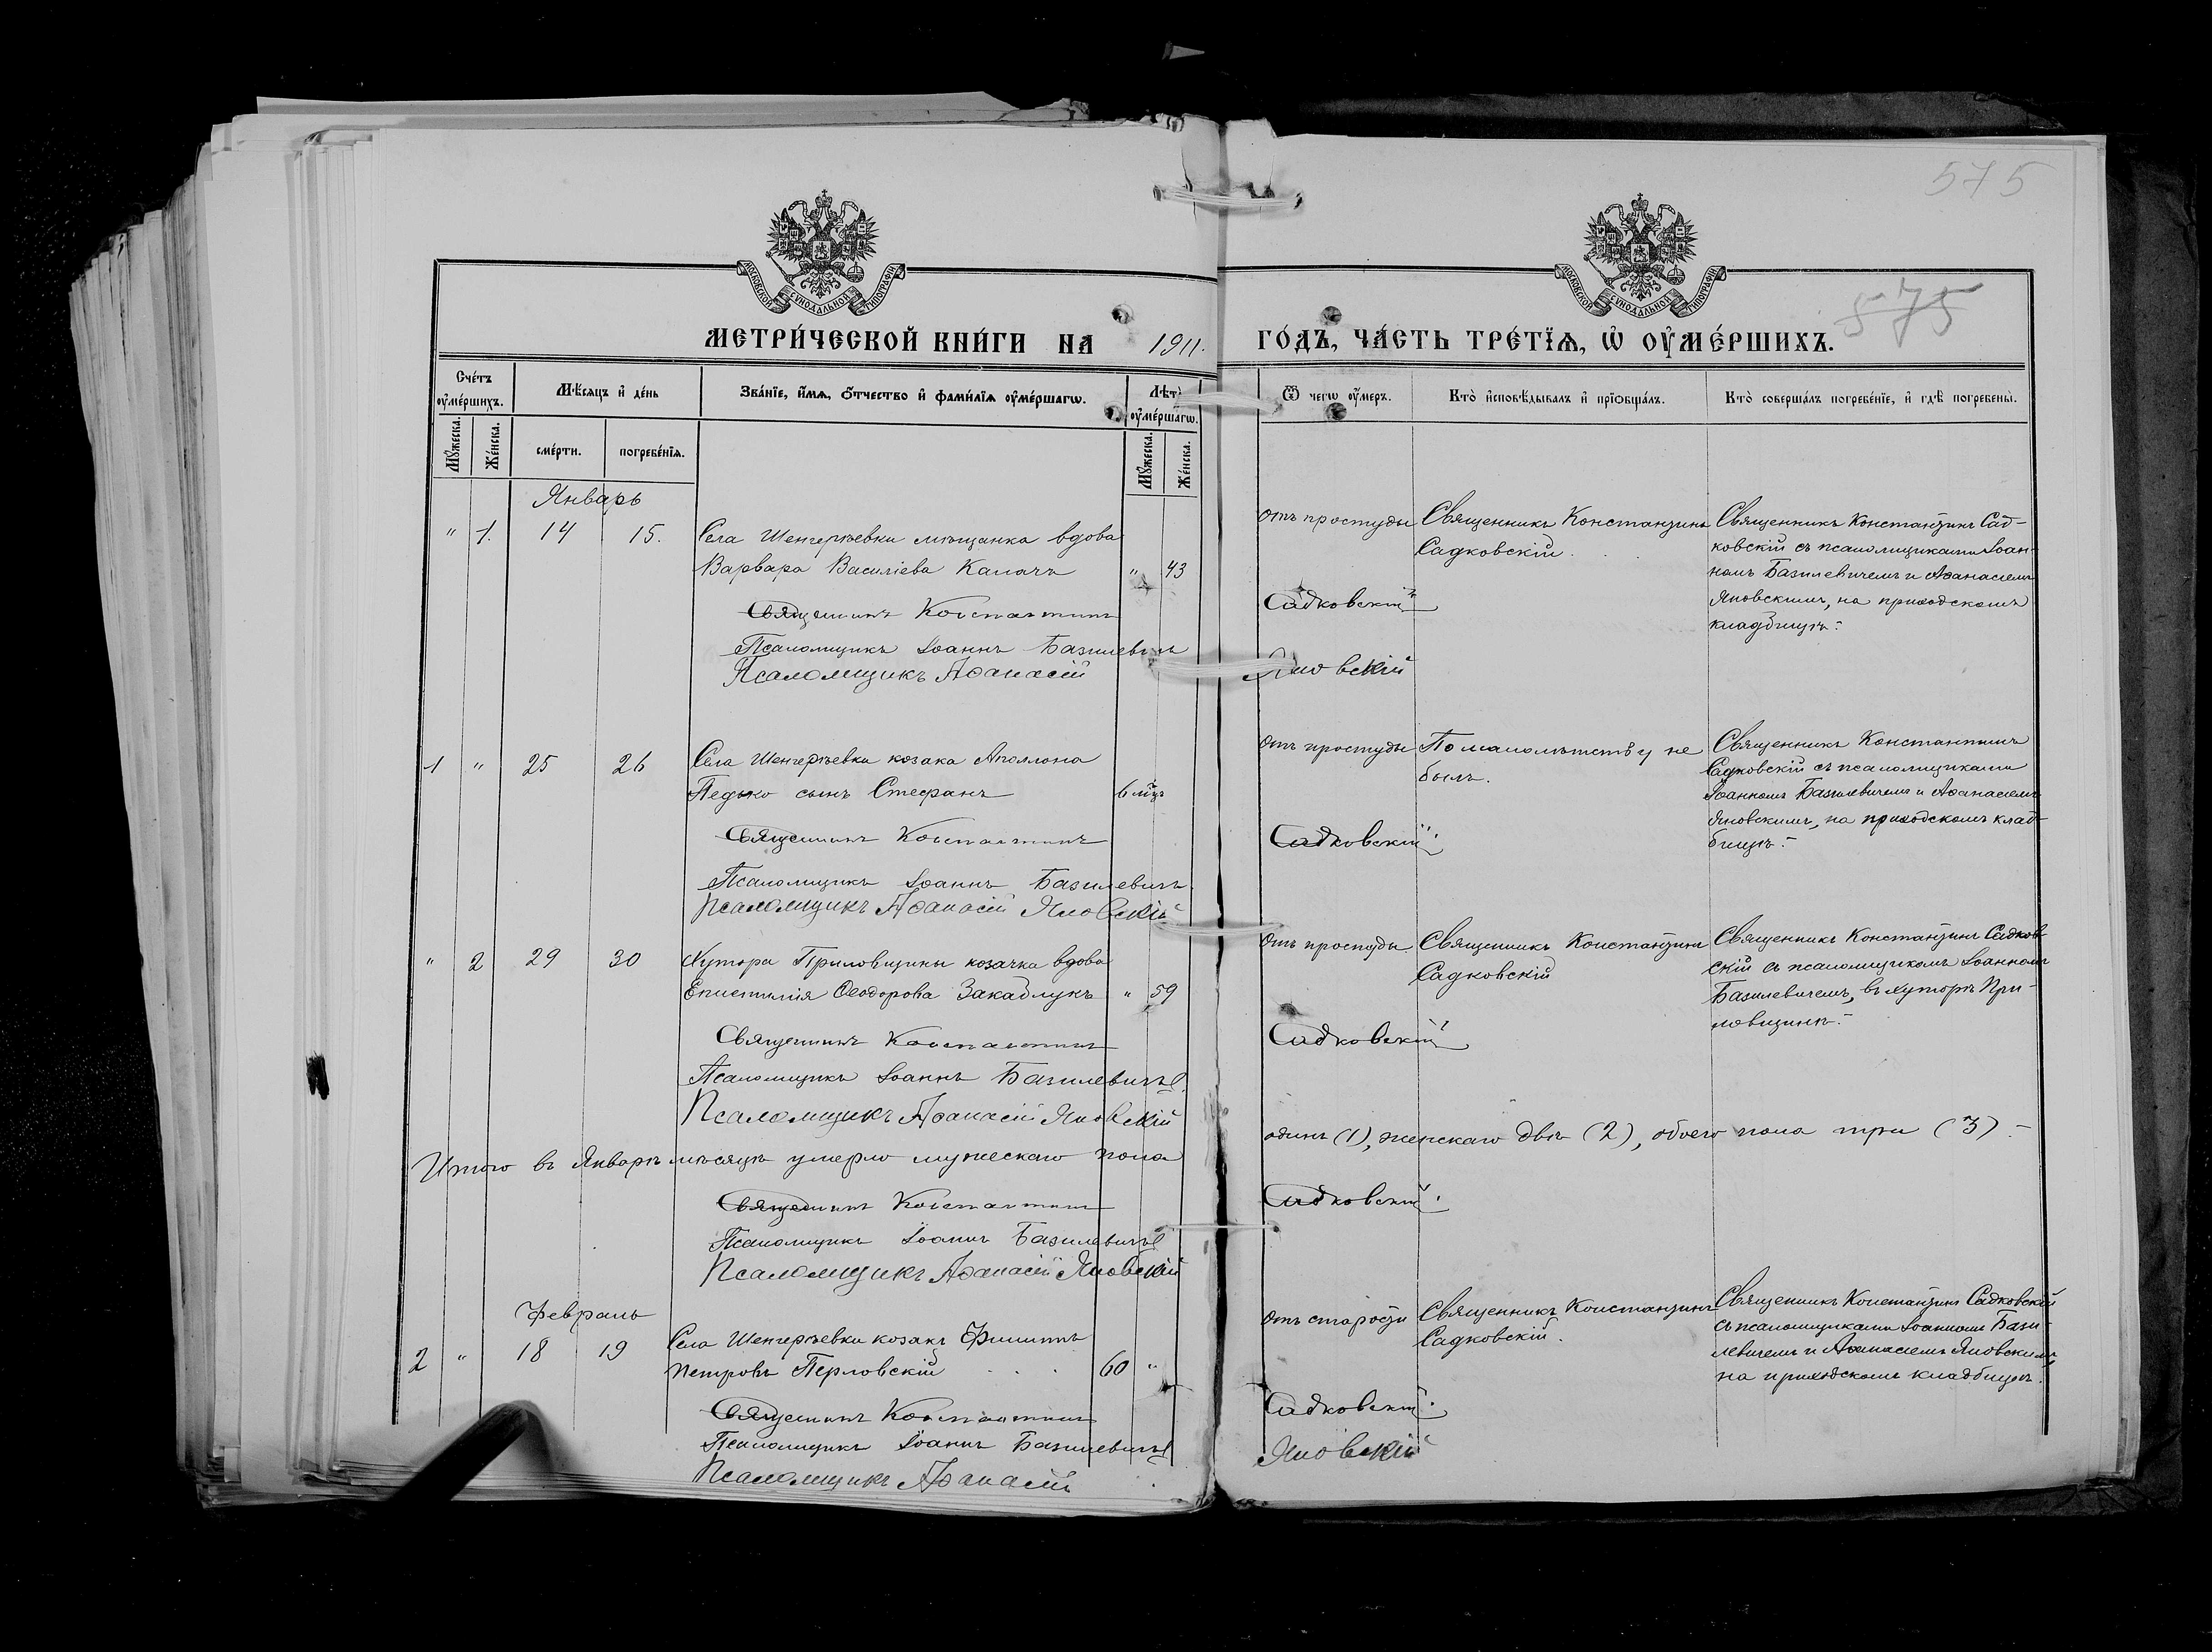 575
575
МОСКОВСКОЙ СѴНОДАЛЬНОЙ ТИПОГРАФІИ
МОСКОВСКОЙ СѴНОДАЛЬНОЙ ТИПОГРАФІИ
МЕТРИ́ЧЕСКОЙ КНИ́ГИ НА 1911. ГО́ДЪ, ЧА́СТЬ ТРЕ́ТЇѦ, Ѡ҆ ОУ҆МЕ́РШИХЪ.
Сче́тъ оу҆ме́ршихъ.
Мѣ́сяцъ и҆ де́нь
Зва́нїе, и҆́мѧ, ѻ҆́тчество и҆ фами́лїѧ оу҆ме́ршагѡ.
Лѣ́тъ оу҆ме́ршагѡ.
Ѿ чегѡ̀ оу҆́меръ.
Кто̀ и҆сповѣ́дывалъ и҆ прїѻбща́лъ.
Кто̀ соверша́лъ погребе́нїе, и҆ гдѣ̀ погребены̀.
Мꙋ́жеска.
Же́нска.
сме́рти.
погребе́нїѧ.
Мꙋ́жеска.
Же́нска.
Январь
" 1. 14 15. Села Шенгеріевки мѣщанка вдова
Варвара Василіева Калачъ " 43
отъ простуды
Священникъ Константинъ
Садковскій.
Священникъ Константинъ Сад-
ковскій съ псаломщиками Іоан-
номъ Базилевичемъ и Аѳанасіемъ
Яновскимъ, на приходскомъ
кладбищѣ.
Священникъ Константинъ Садковскій
Псаломщикъ Іоаннъ Базилевичъ
Псаломщикъ Аѳанасій Яновскій
1 " 25 26 Села Шенгеріевки козака Аполлона
Педько сынъ Стефанъ 6 мцъ
Отъ простуды
По малолѣтству не
былъ.
Священникъ Константинъ
Садковскій съ псаломщиками
Іоанномъ Базилевичемъ и Аѳанасіемъ
Яновскимъ, на приходскомъ клад-
бищѣ.
Священникъ Константинъ Садковскій.
Псаломщикъ Іоаннъ Базилевичъ
Псаломщикъ Аѳанасій Яновскій
" 2 29 30 ХутораПриловщины козачка вдова
Епистимія Ѳеодорова Закаблукъ " 59
Отъ простуды
Священникъ Константинъ
Садковскій
Священникъ Константинъ Садков-
скій съ псаломщикомъ Іоанномъ
Базилевичемъ, въ хуторѣ При-
ловщинѣ.
Священникъ Константинъ Садковскій
Псаломщикъ Іоаннъ Базилевичъ
Псаломщикъ Аѳанасій Яновскій
Итого въ Январѣ мѣсяцѣ умерло мужескаго пола одинъ (1), женскаго двѣ (2), обоего пола три (3).
Священникъ Константинъ Садковскій.
Псаломщикъ Іоаннъ Базилевичъ
Псаломщикъ Аѳанасій Яновскій
Февраль
2 " 18 19 Села Шенгеріевки козакъ Филиппъ
Петровъ Перловскій . . . 60 "
Отъ старости
Священникъ Константинъ
Садковскій.
Священникъ Константинъ Садковскій
съ псаломщиками Іоанномъ Бази-
левичемъ и Аѳанасіемъ Яновскимъ
на приходскомъ кладбищѣ.
Священникъ Константинъ Садковскій.
Псаломщикъ Іоаннъ Базилевичъ
Псаломщикъ Аѳанасій Яновскій